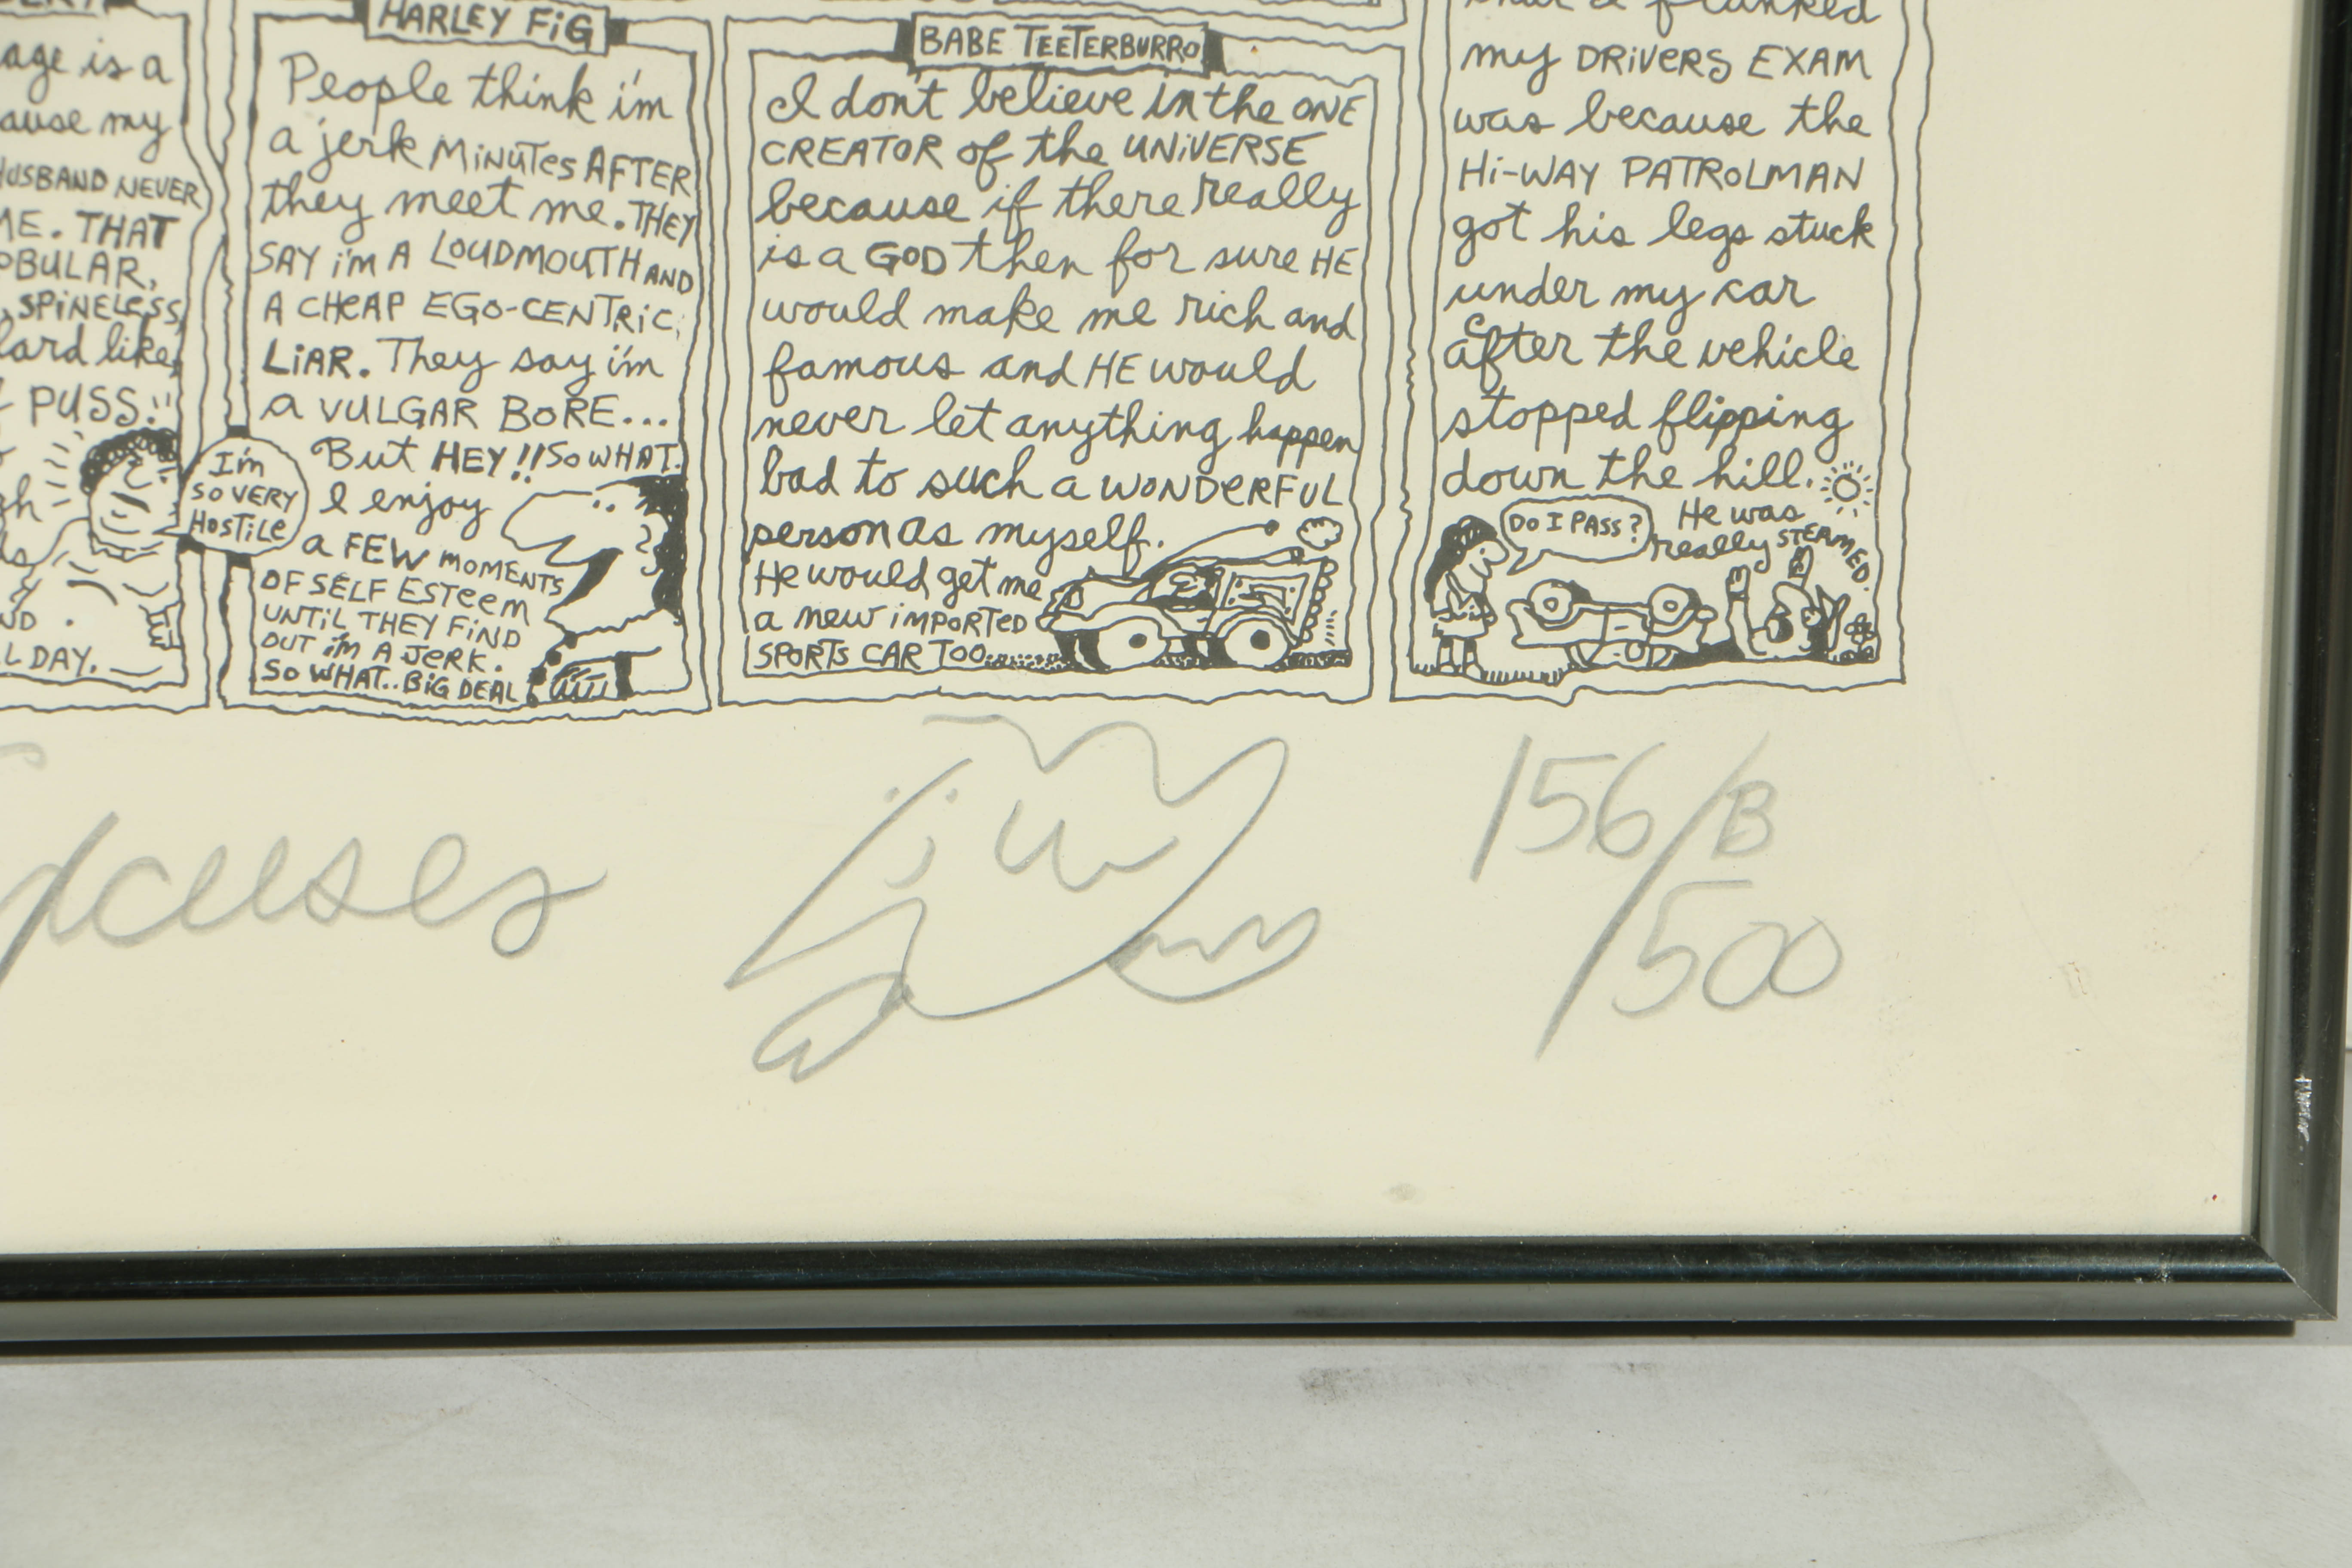 age is a
ause my
HUSBAND NEVER
ME. THAT
OBULAR,
SPINELESS,
lard like,
PUSS!!
L DAY.
I'm
SO VERY
HOSTILE
HARLEY FiG
People think i'm
a jerk MiNUTES AFTER
they meet me. THEY
SAY i'm A LOUDMOUTH AND
A CHEAP EGO-CENTRIC,
LiAR. They say i'm
a VULGAR BORE...
But HEY!! SO WHAT.
I enjoy
a FEW MOMENTS
OF SELF ESTEEM
UNTIL THEY FIND
OUT i'm A JERK.
SO WHAT.. BiG DEAL
BABE TEETERBURRO
I don't believe in the ONE
CREATOR of the UNiVERSE
because if there really
is a GOD then for sure HE
would make me rich and
famous and HE would
never let anything happen
bad to such a WONDERFUL
person as myself.
He would get me
a new iMPORTED
SPORTS CAR TOO.
my DRiVERS EXAM
was because the
Hi-WAY PATROLMAN
got his legs stuck
under my car
after the vehicle
stopped flipping
down the hill.
He was
really STEAMED.
DO I PASS?
156/B
500